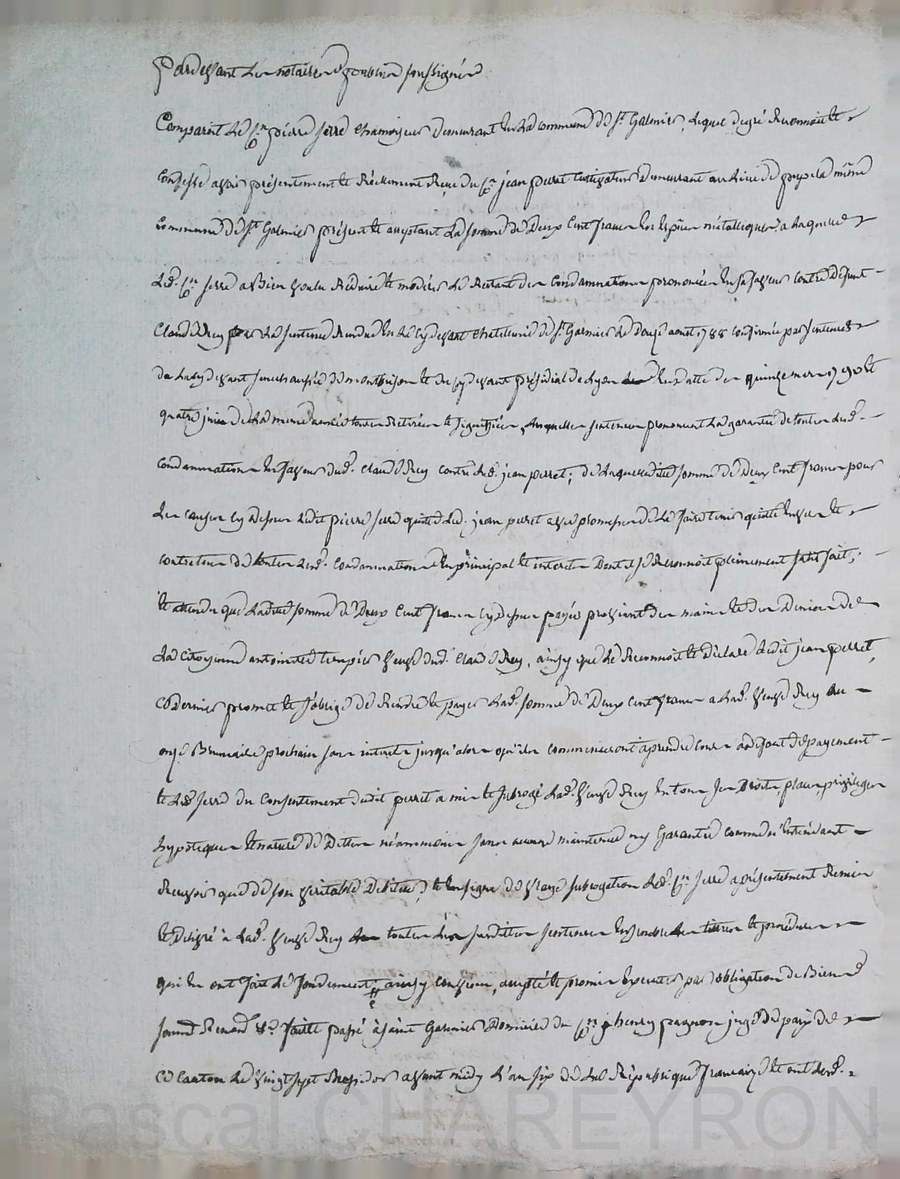 Pardevant les notaires publics soussignés
Comparait le C.en pierre serre chamoiseur demeurant en la commune de S.t Galmier, lequel degré Reconnoit et
Confesse avoir présentement et Réellement Reçu du C.en jean perret cultivateur demeurant au lieu de la même
Commune de S.t Galmier présent et acceptant la somme de Deux Cent francs en Espèces métalliques à laquelle
led. C.en serre a Bien voulu Réduire et modérer le Restant des Condamnations prononcées en sa faveur contre défunt
Claude Rey par la sentence Rendue en la cydevant chatellenie de S.t Galmier le Douze aout 1788 confirmée par sentences
de la cydevant senechaussée de montbrison et du cydevant présidial de Lyon en datte des quinze mars 1790 et
quatre juin de la meme année toutes Retirées et signifiées, lesquelles sentences prononcent la garantie de toutes lesd.
condamnations en faveur dud. Claude Rey contre led. jean perret; de laquelle ditte somme de Deux Cent francs pour
les causes cy Dessus ledit pierre serre quitte led. jean perret avec promesse de le faire tenir quitte envers et
contre tous de toutes lesd. Condamnations en principal et interets Dont il se Reconnoit pleinement satisfait;
et attendu que laditte somme de Deux Cent francs cy Dessus payée provient des mains et des Deniers de
la Citoyenne antoinette veuve dud. Claude Rey, ainsy que le Reconnoit et Déclare ledit jean perret,
ce Dernier promet et s'oblige de Rendre et payer lad. somme de Deux Cent francs a lad. veuve Rey au
onze Brumaire prochain sans interets jusqu'alors qu'ils commenceront a prendre cours a deffaut de payement
et led. serre du Consentement dudit perret a mis et subrogé lad. veuve Rey en tous ses Droits, place, privileges
hypoteques et nature de Dettes néanmoins sans aucune maintenue ny Garantie comme n'entendant
Recevoir que de son veritable Debiteur, et en signe de vraye subrogation led. C.en serre a présentement Remis
et Delivré à lad. veuve Rey toutes les susdittes sentences ensemble les titres et procédures
qui en ont fait le fondement; ainsy convenu, accepté et promis executer par obligation de Biens
soumis Renoncé &.a faitte passé à saint Galmier Domicile du C.en j henry pagnon juge de paix de
ce canton le vingt sept Messidor avant midy l'an six de la République francaise et ont lesd.
Pascal CHAREYRON